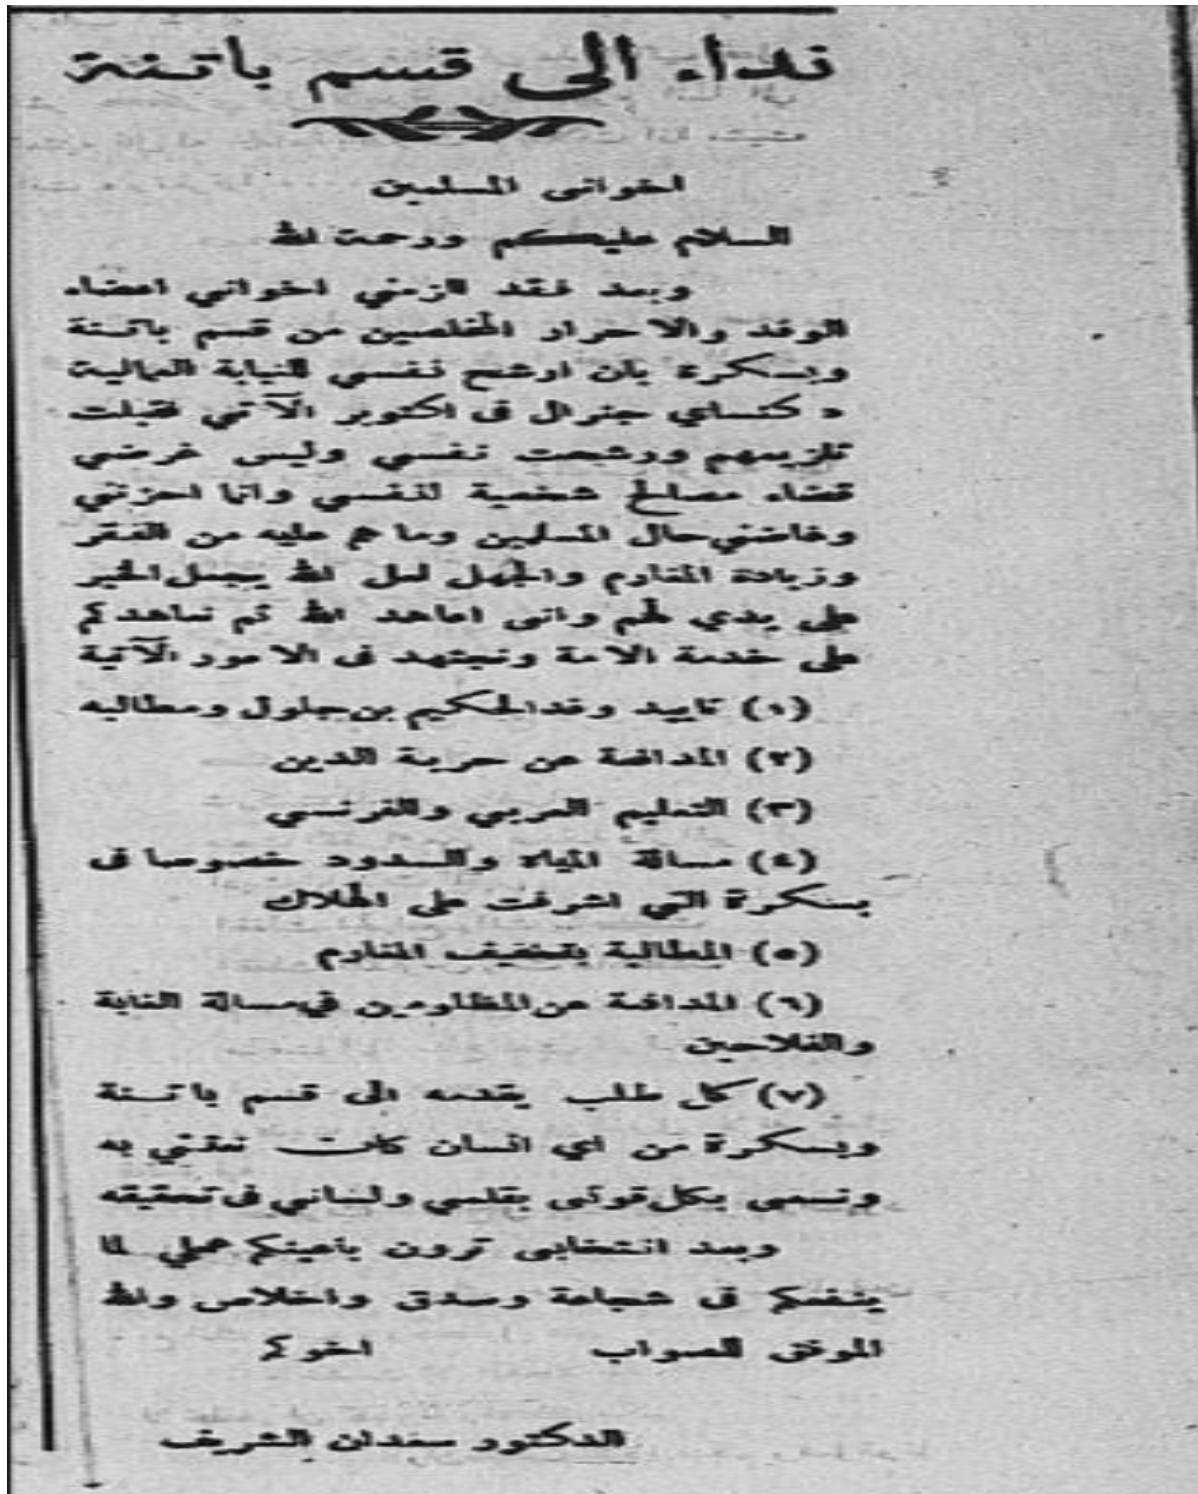 نداء الى قسم باتنة
اخوانى المسلمين
السلام عليكم ورحمة الله
وبعد فقد الزمني اخواني اعضاء
الوفد والاحرار المخلصين من قسم باتنة
وبسكرة بان ارشح نفسي للنيابة المالية
« كنساي جنرال فى اكتوبر الآتي فقبلت
تلزيمهم ورشحت نفسي وليس غرضي
قضاء مصالح شخصية لنفسي وانما احزنني
وغاضني حال المسلمين وما هم عليه من الفقر
وزيادة المغارم والجهل لعل الله يجعل الخير
على يدي لهم وانى اعاهد الله ثم نعاهدكم
على خدمة الامة ونجتهد فى الامور الآتية
(١) تاييد وفد الحكيم بن جلول ومطالبه
(٢) المدافعة عن حرية الدين
(٣) التعليم العربي والفرنسي
(٤) مسالة المياه والسدود خصوصا فى
بسكرة التي اشرفت على الهلاك
(٥) المطالبة بتخفيف المغارم
(٦) المدافعة عن المظلومين في مسالة الغابة
والفلاحين
(٧) كل طلب يقدمه الى قسم باتنة
وبسكرة من اي انسان كانت نعتني به
ونسعى بكل قوتى بقلمي ولساني فى تحقيقه
وبعد انتخابى ترون باعينكم عملي لما
ينفعكم فى شجاعة وصدق واخلاص والله
الموفق للصواب اخوكم
الدكتور سعدان الشريف